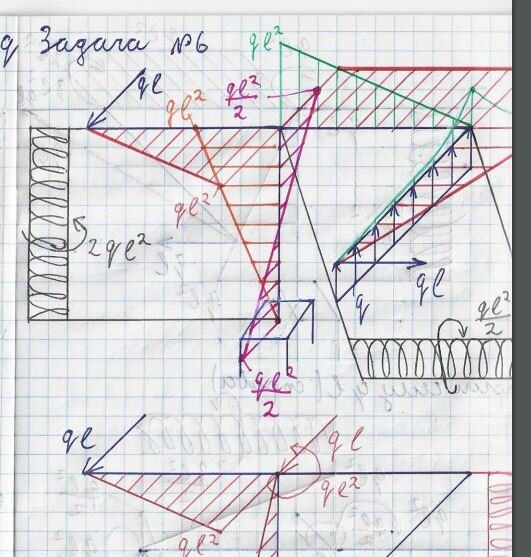 q Задача №6
ql²
ql
ql²
ql²/2
ql²
2ql²
q
ql
ql²/2
ql²/2
ql
ql
ql²
ql²